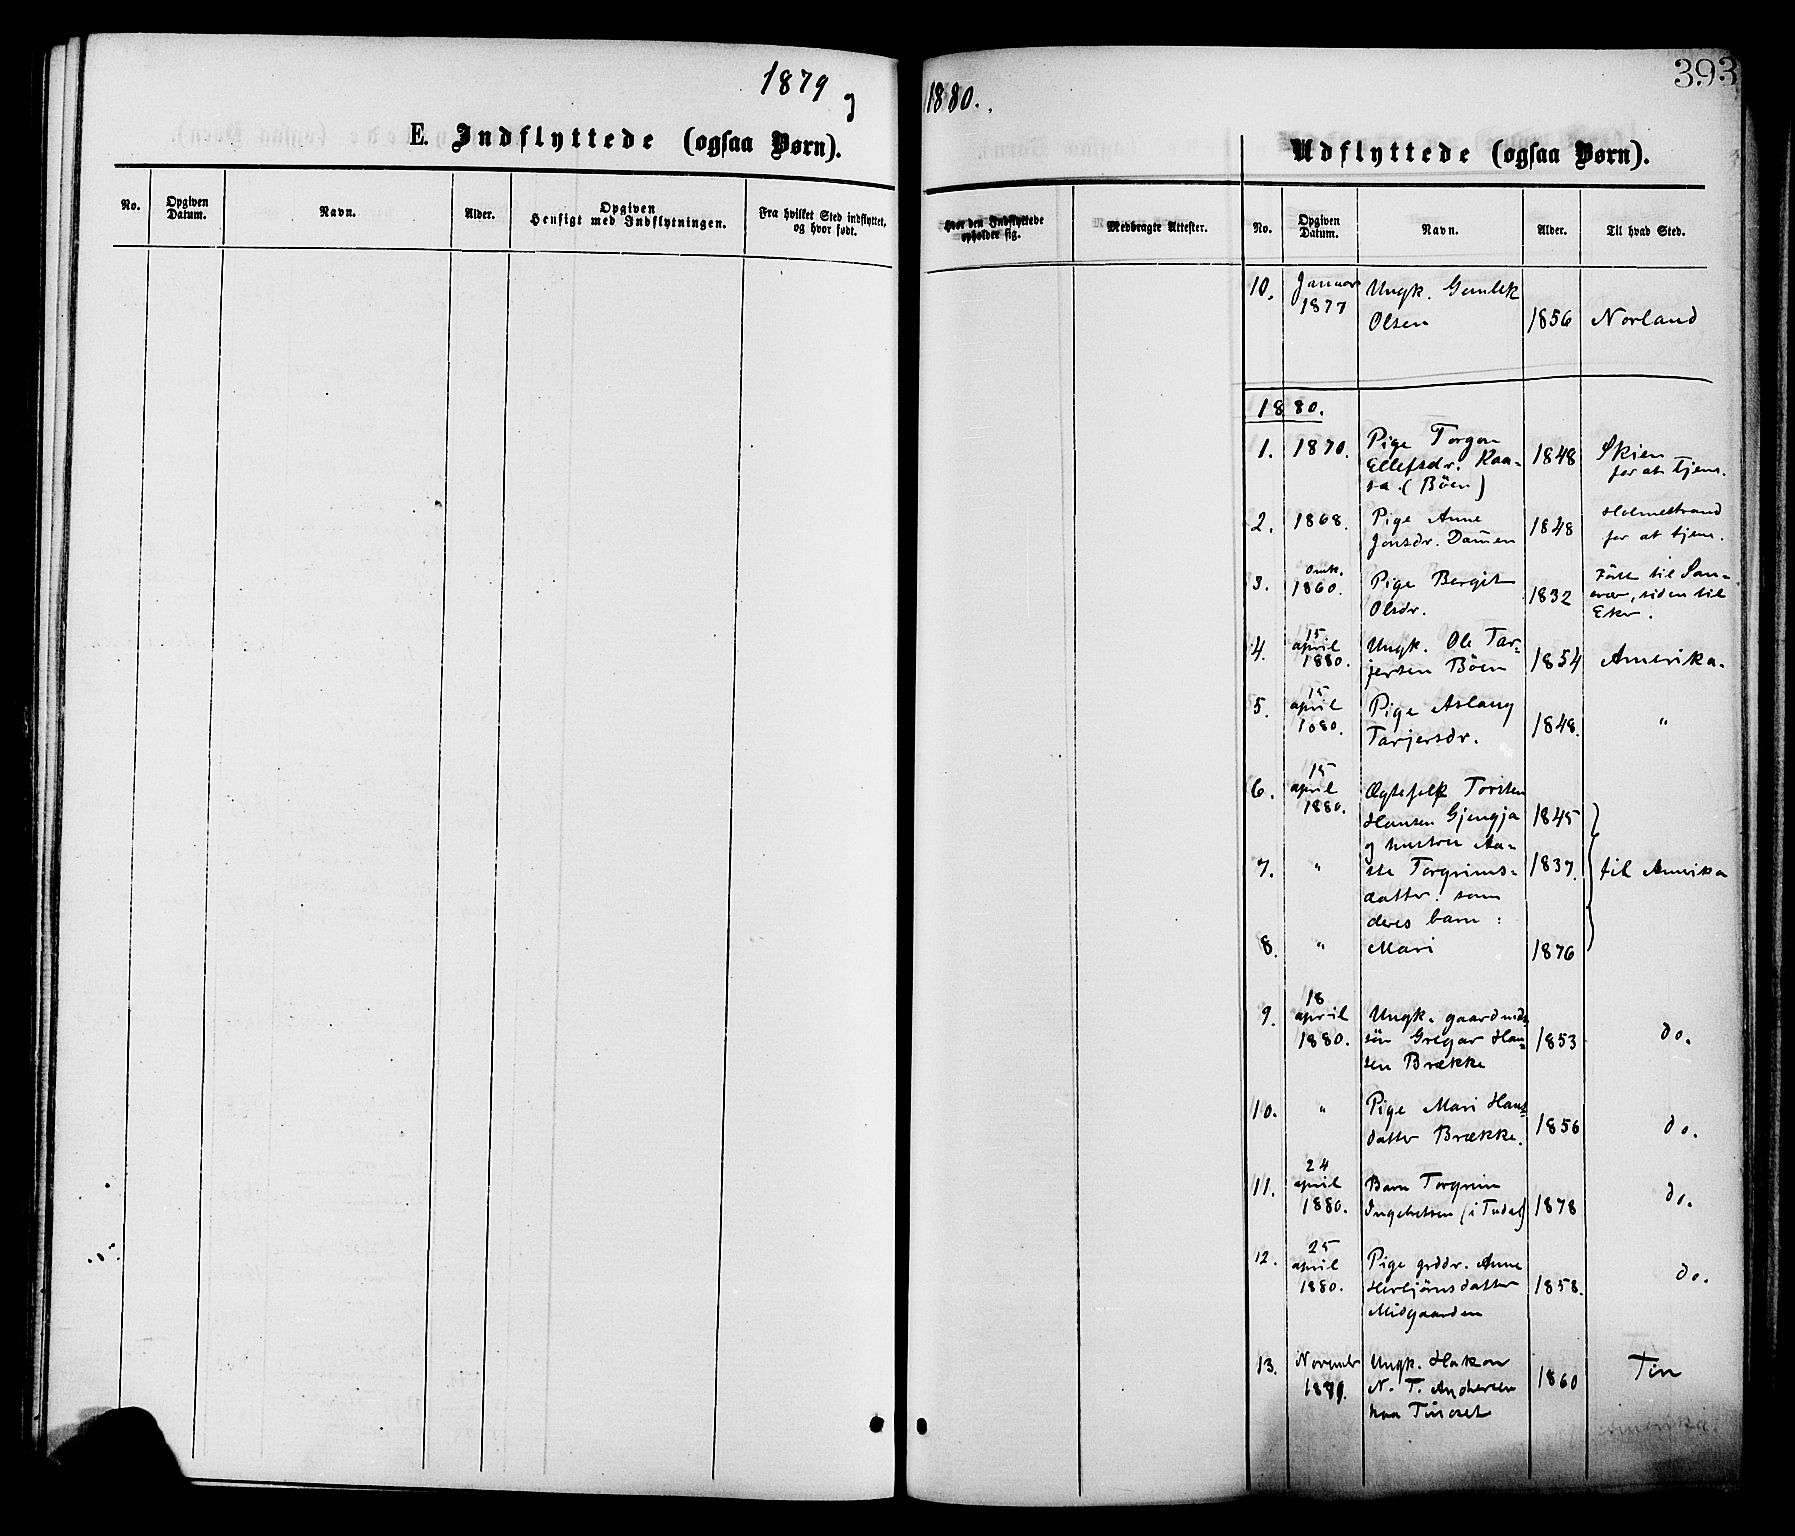 1879 og 1880.
393
E. Indflyttede (ogsaa Børn).
Udflyttede (ogsaa Børn).
No. Opgiven Datum. Navn. Alder. Opgiven Hensigt med Indflytningen. Fra hvilket Sted indflyttet, og hvor født. Hvor den Indflyttede opholder sig. Medbragte Attester.
No. Opgiven Datum. Navn. Alder. Til hvad Sted.
10. Januar Ungk. Gunlek
1877 Olsen 1856 Norland
1880.
1. 1870. Pige Torgon 1848 Skien
Ellefsdr. Kaa- for at tjene.
sa. (Böen)
2. 1868. Pige Anne 1848 Holmestrand
Jonsdr. Dammen for at tjene.
3. omk. Pige Bergit Först til San-
1860. Olsdr. 1832 svær, siden til
Eker.
4. 15 april Ungk. Ole Tar-
1880. jersen Böen 1854 Amerika.
5. 15 april Pige Aslaug
1880. Tarjersdr. 1848. "
6. 15 april Ægtefolk Torsten
1880. Hansen Gjengja 1845
og hustru Aa-
7. " ste Torgrims- 1837. til Amerika
datter. samt
deres barn:
8. " Mari 1876
9. 18 april Ungk. gaardmds
1880. sön Gregar Han- 1853 do.
sen Brække
10. " Pige Mari Hans
datter Brække. 1856 do.
11. 24 april Barn Torgrim
1880. Ingebretsen (i Tudal) 1878 do.
12. 25 april Pige grddr. Anne
1880. Herbjörnsdatter 1858. do.
Midgaarden
13. November Ungk. Hakon Tin
N. T. Andersen 1860
paa Tinoset